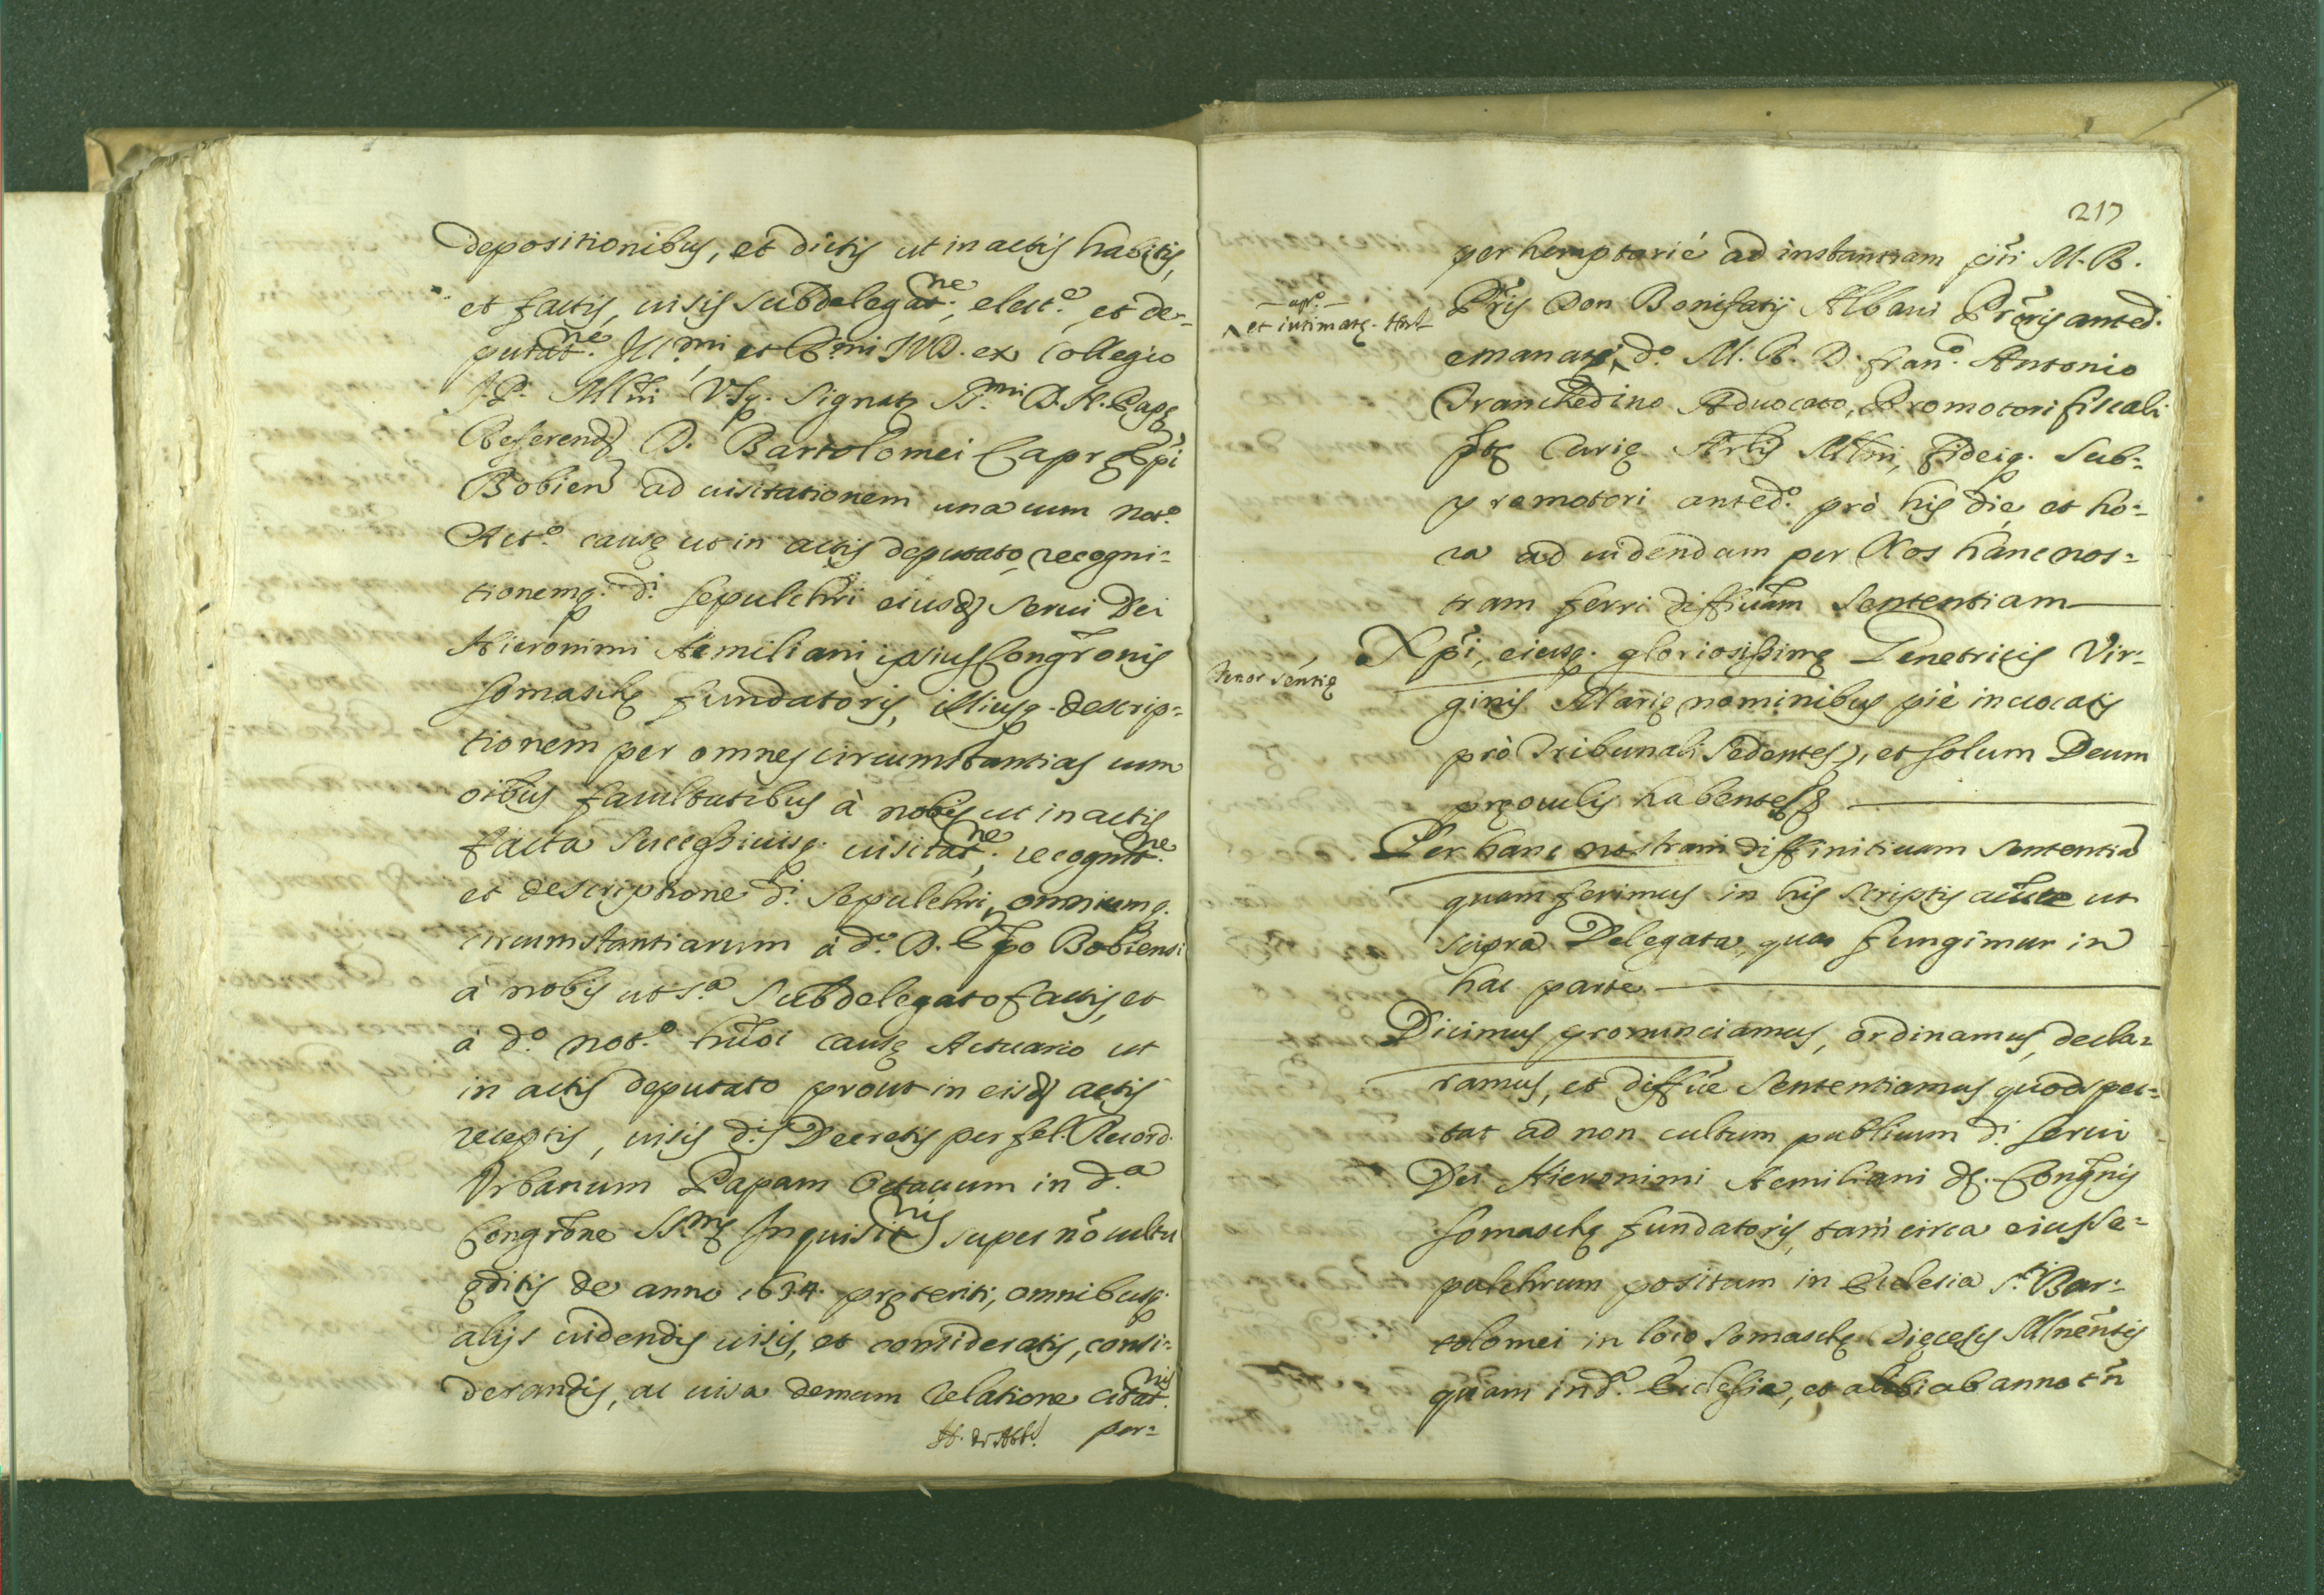 depositionibus, et dictis ut in actis habitis,
et factis, uisis subdelegat.ne, elect.e, et de-
putat.ne Ill.mi et R.mi IVD. ex Collegio
J.P. Mlni V.S.q. Signatę S.mi D.N. Papę
Referend D. Bartolomei Capra Ep̃i
Bobien ad uisitationem una cum Not.o
Act.o causę ut in actis deputato, recogni-
tionemq. d.i sepulchri eiusd serui Dei
Hieronimi Aemiliani ipsius Congr̃onis
somaschę fundatoris, illiusq. descrip-
tionem per omnes circumstantias cum
oĩbus facultatibus à nobis ut in actis
facta successiuisq. uisitat.ne, recognit.ne
et descriptione d.i sepulchri, omniumq.
circumstantiarum à d.o D. Ep̃o Bobiensi
à nobis ut s.a subdelegato factis, et
à d.o not.o hm̃oi causę Actuario ut
in actis deputato prout in eisd actis
receptis, uisis d.is Decretis per fel. Record.
Vrbanum Papam Octauum in d.a
Congr̃one SS.mę Inquisit.nis super nõ cultu
ęditis de anno 1634. pręteriti, omnibusq.
alijs uidendis uisis, et consideratis, consi-
derandis, ac uisa demum relatione citat.nis
per-
217
perhemptorié ad instantiam pñti M.R.
Pr̃is Don Bonifatij Albani Pr̃oris anted.
et intimatę
emanatę, d.o M.R.D. fran.o Antonio
Tranchedino Aduocato, Promotori fiscali
ptę Curię Arl̃is Mlñi, fideiq. sub-
promotori anted.o prò his die, et ho-
ra ad uidendam per Nos hanc nos-
tram ferri diffiuãm sententiam
Tenor sentię
Xp̃i, eiusq. gloriosissimę Genetricis Vir-
ginis Marię nominibus piè inuocatis
prò Tribunali sedentes, et solum Deum
pręoculis habentes
Per hanc nostram diffinitiuam sententiã
quam ferimus in his scriptis aũcte ut
supra Delegata, qua fungimur in
hac parte
Dicimus pronunciamus, ordinamus, decla-
ramus, et diffiũe sententiamus quod spec-
tat ad non cultum publicum d.i serui
Dei Hieronimi Aemiliani d. Congñis
somaschę fundatoris, tam circa eius se-
pulchrum positum in Ecclesia S.ti Bar-
tolomei in loco somaschę Dięcesis Mlnẽntis
quam in d.o Ecclesia, et alibi ab anno tñ